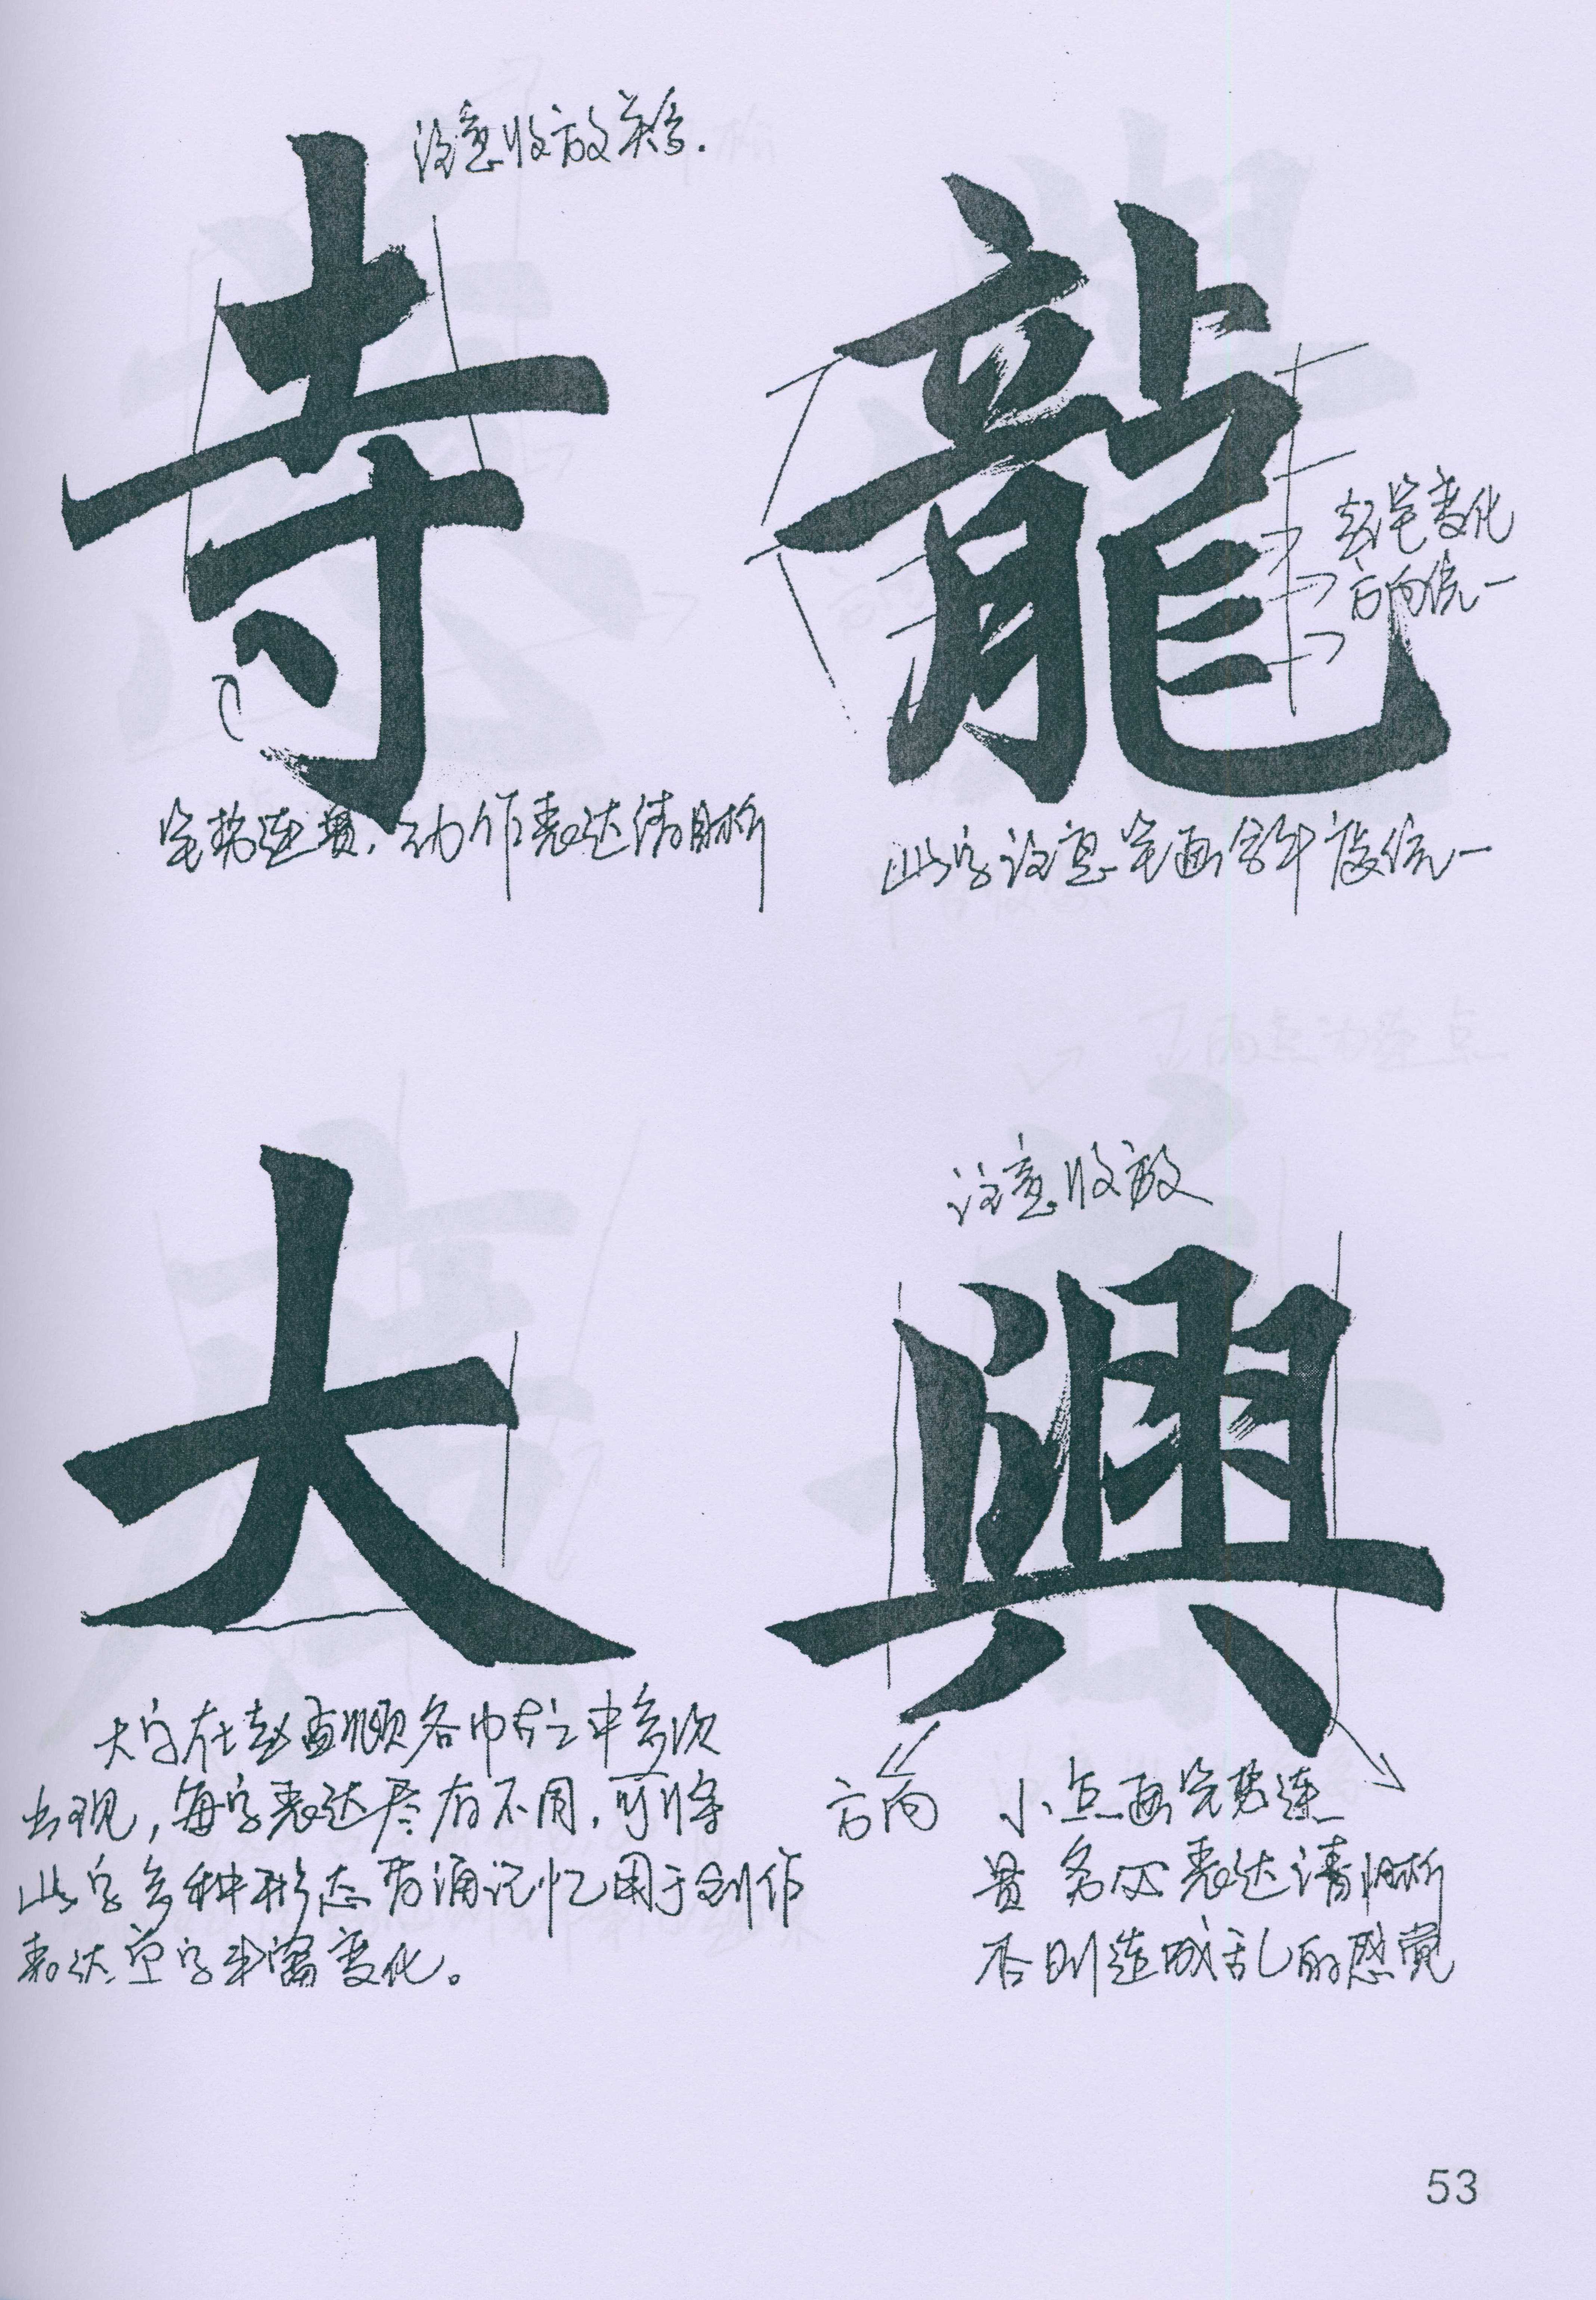 注意收放关系.
寺
笔势连贯.动作表达清晰
龍
起笔变化
方向统一
此字注意笔画斜度统一
大
大字在赵孟頫各巾帖之中多次
出现,每字表达尽有不同.可将
此字多种形态背诵记忆用于创作
表达单字丰富变化。
注意收放
興
方向
小点画笔势连
贯 务必表达清晰
否则造成乱的感觉
53